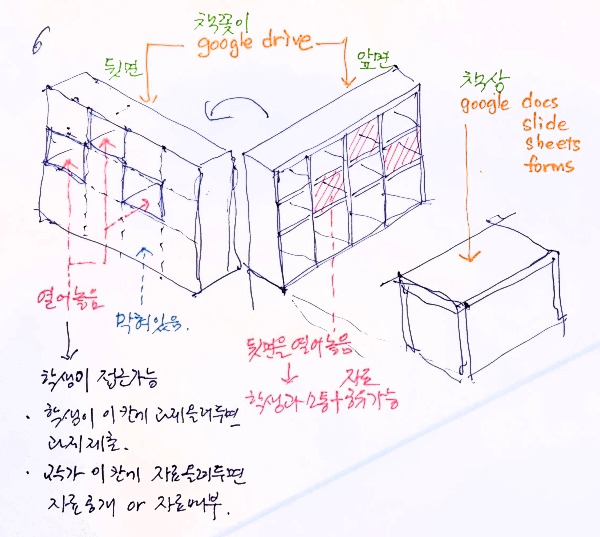 6
책꽂이
google drive
뒷면
앞면
책상
google docs
slide
sheets
forms
열어놓음
막혀있음.
뒷면을 열어놓음
자료
학생과 소통+공유가능
학생이 접근가능
· 학생이 이 칸에 과제올려두면
과제제출.
· 이 칸에 자료올려두면
자료공개 or 자료배부.